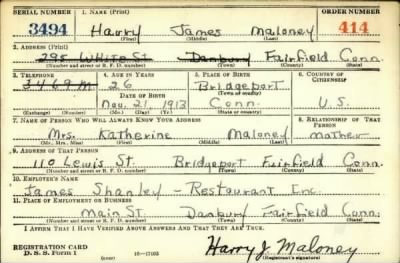 SERIAL NUMBER 1. NAME (Print) ORDER NUMBER
3494 Harry James Maloney 414
(First) (Middle) (Last)
2. ADDRESS (Print)
295 White St Danbury Fairfield Conn.
(Number and street or R. F. D. number) (Town) (County) (State)
3. TELEPHONE 4. AGE IN YEARS 5. PLACE OF BIRTH 6. COUNTRY OF CITIZENSHIP
3469 M 26 Bridgeport
DATE OF BIRTH (Town or county)
Nov. 21, 1913 Conn. U.S.
(Exchange) (Number) (Mo.) (Day) (Yr.) (State or country)
7. NAME OF PERSON WHO WILL ALWAYS KNOW YOUR ADDRESS 8. RELATIONSHIP OF THAT PERSON
Mrs. Katherine Maloney mother
(Mr., Mrs., Miss) (First) (Middle) (Last)
9. ADDRESS OF THAT PERSON
110 Lewis St. Bridgeport Fairfield Conn.
(Number and street or R. F. D. number) (Town) (County) (State)
10. EMPLOYER'S NAME
James Shanley - Restaurant Inc.
11. PLACE OF EMPLOYMENT OR BUSINESS
Main St Danbury Fairfield Conn.
(Number and street or R. F. D. number) (Town) (County) (State)
I AFFIRM THAT I HAVE VERIFIED ABOVE ANSWERS AND THAT THEY ARE TRUE.
REGISTRATION CARD
D. S. S. Form 1 (over) Harry J. Maloney
(Registrant's signature)